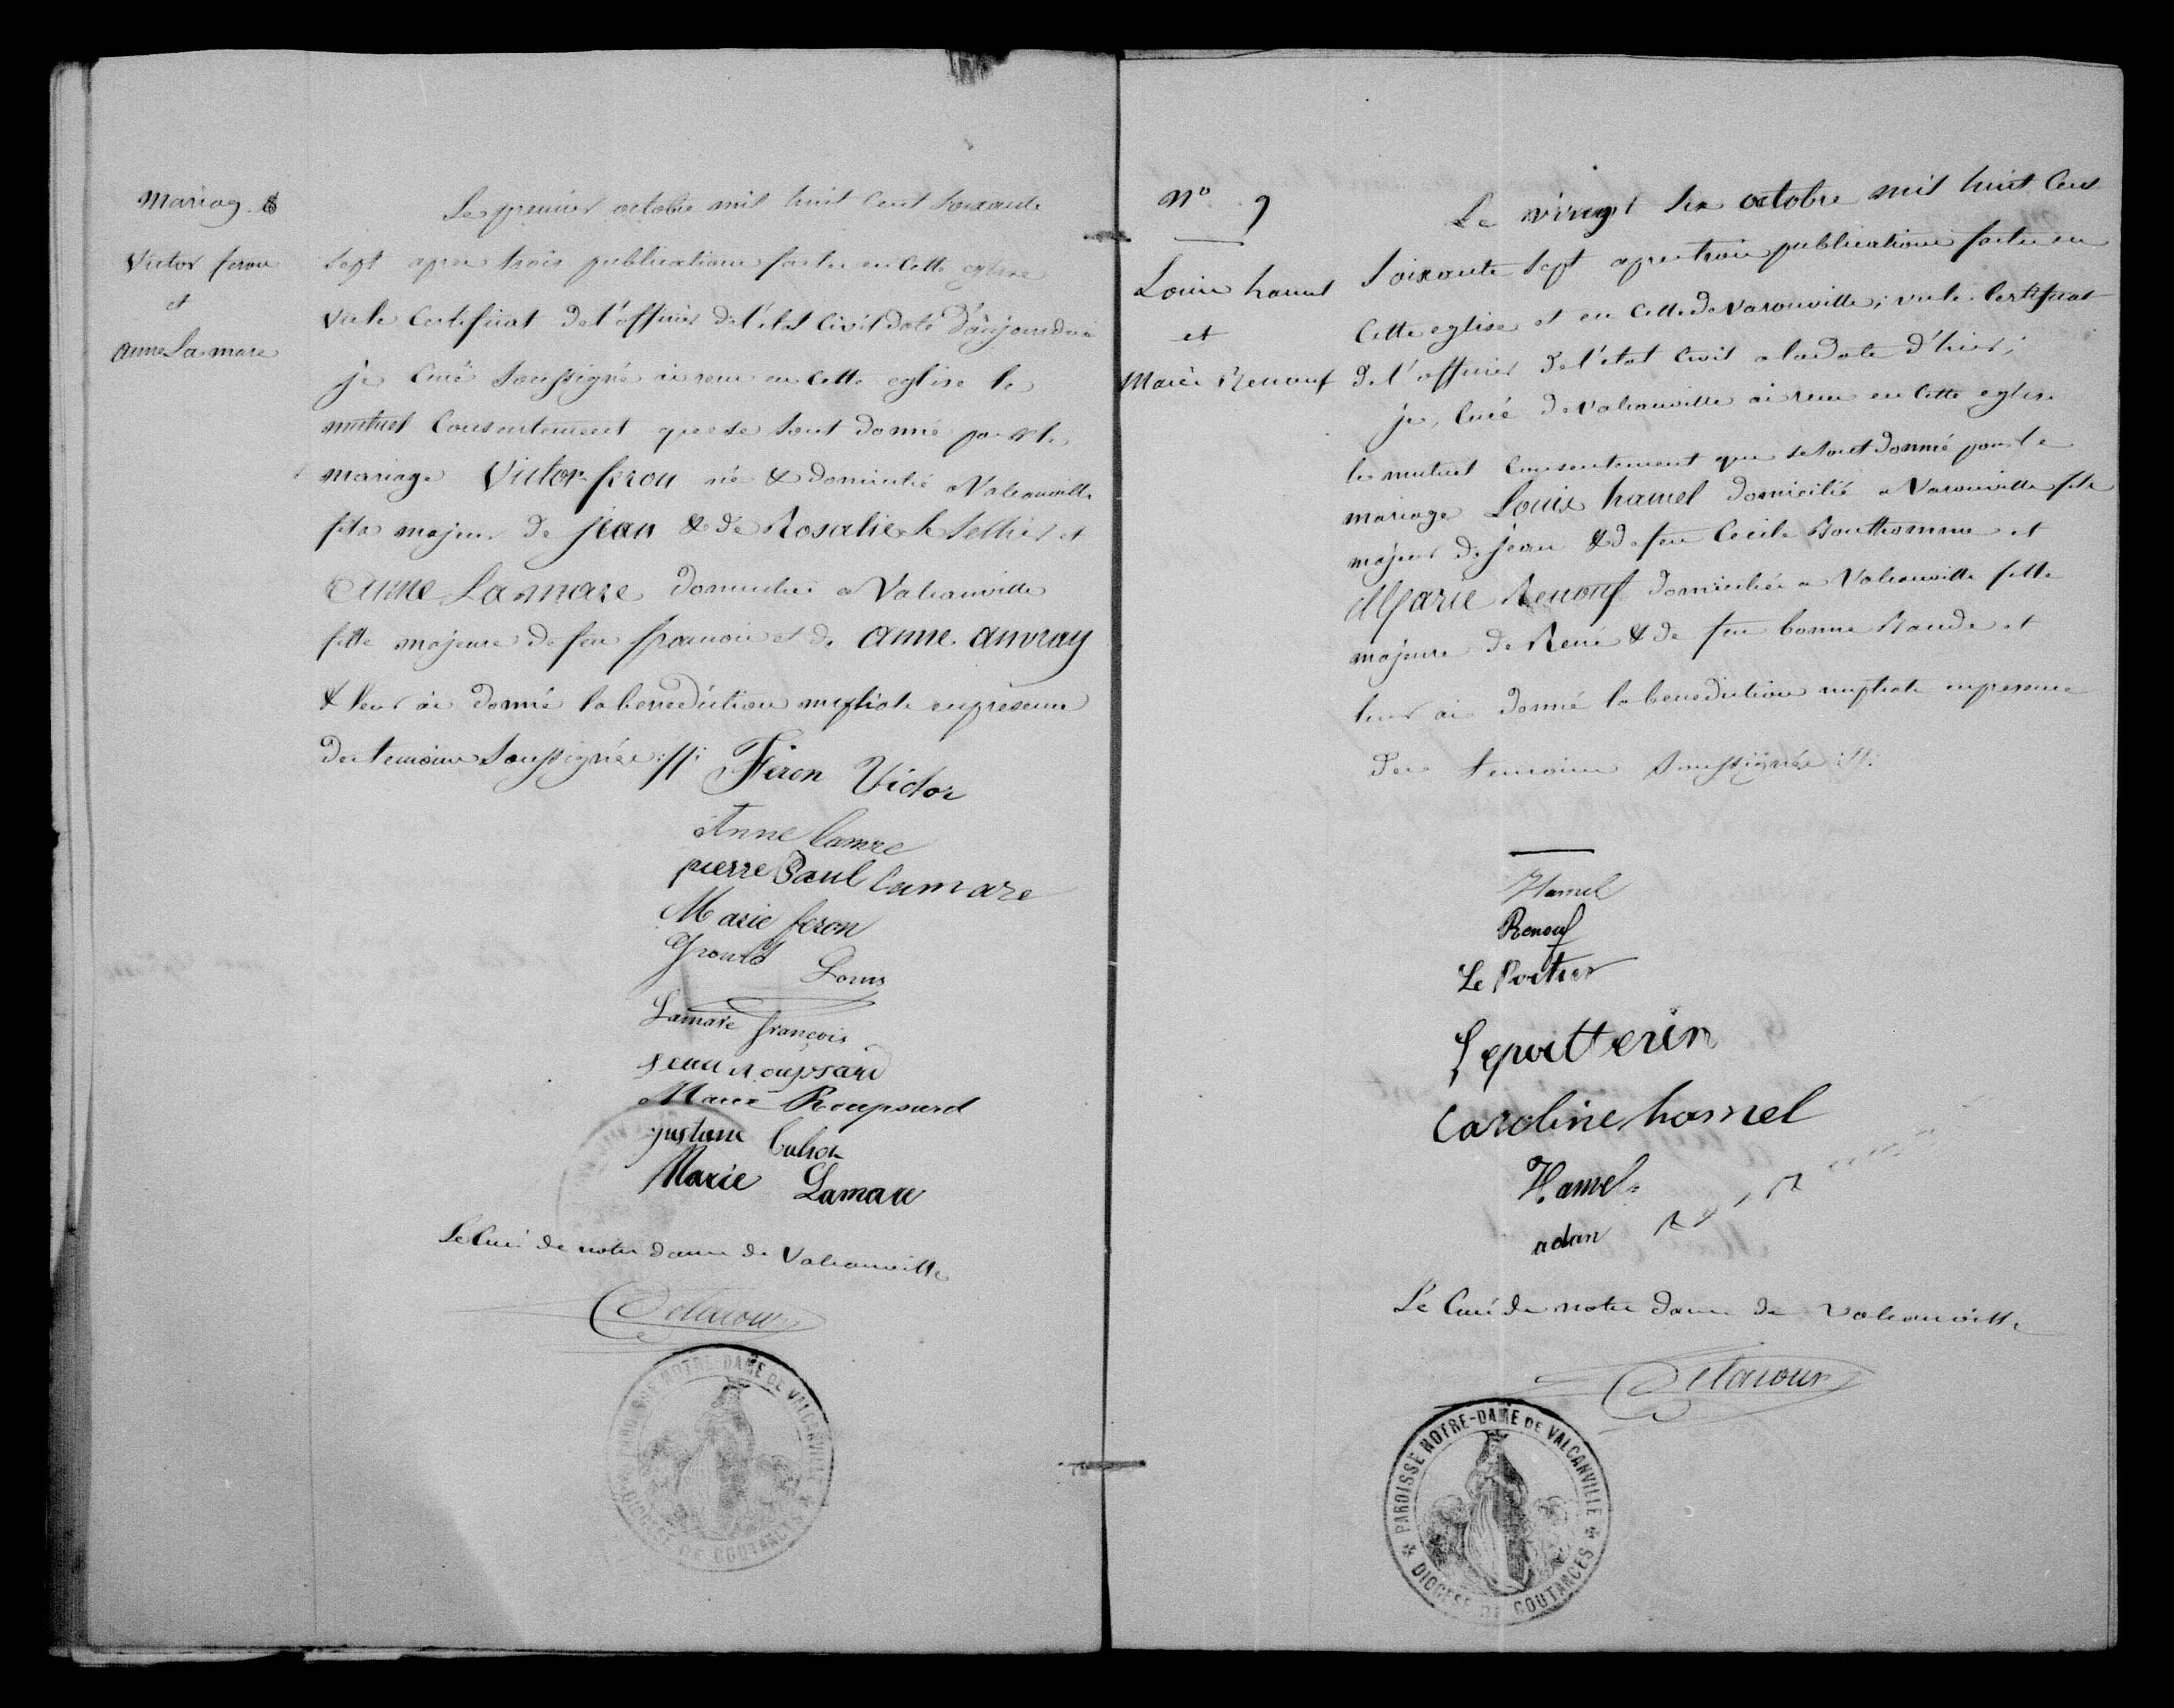 Mariag. 8
Victor feron
et
anne Lamare
Le premier octobre mil huit cent soixante
sept apres trois publications faites en cette eglise
vu le certificat de l'officier de l'etat civil daté d'aujourdui
je curé soussigné ai recu en cette eglise le
mutuel consentement que se sont donné pour le
mariage Victor feron né & domicilié a Valcanville
fils majeur de jean & de Rosalie le Sellier et
Anne Lamare domiciliée a Valcanville
fille majeure de feu francois et de anne anvray
& leur ai donné la benediction nuptiale en presence
des temoins soussignés ://:
Féron Victor
Anne lamre
pierre Paul lamare
Marie feron
Grould Louis
Lamare françois
jean roupsard
Marie Roupsard
justine
Marie Lamare
Le Curé de notre dame de Valcanville
Delacour
PAROISSE NOTRE-DAME DE VALCANVILLE
DIOCESE DE COUTANCES
N° 9
Louis hamel
et
Marie Renouf
Le vingt six octobre mil huit cent
soixante sept apres trois publications faites en
cette eglise et en celle de Varouville; vu le certificat
de l'officier de l'etat civil a la date d'hier;
je, curé de Valcanville ai recu en cette eglise
le mutuel consentement que se sont donné pour le
mariage Louis hamel domicilié a Varouville fils
majeur de jean & de feu Cecile Bonthomme et
Marie Renouf domiciliée a Valcanville fille
majeure de René & de feu bonne Rande et
leur ai donné la benediction nuptiale en presence
des temoins soussignés ://:
Hamel
Renouf
Le Poitier
Lepoitterin
Caroline hamel
Hamel
adan
Le Curé de notre dame de Valcanville
Delacour
PAROISSE NOTRE-DAME DE VALCANVILLE
DIOCESE DE COUTANCES